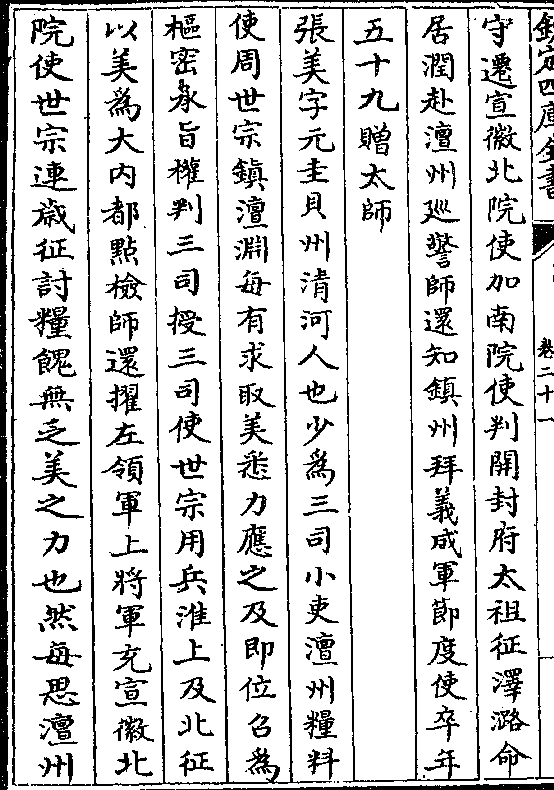 欽定四庫全書
卷二十一
守遷宣徽北院使加南院使判開封府太祖征澤潞命
居潤赴澶州巡警師還知鎮州拜義成軍節度使卒年
五十九贈太師
張美字元圭貝州清河人也少爲三司小吏澶州糧料
使周世宗鎮澶淵每有求取美悉力應之及即位召爲
樞密承旨權判三司授三司使世宗用兵淮上及北征
以美爲大内都點檢師還擢左領軍上將軍充宣徽北
院使世宗連歲征討糧餽無乏美之力也然每思澶州